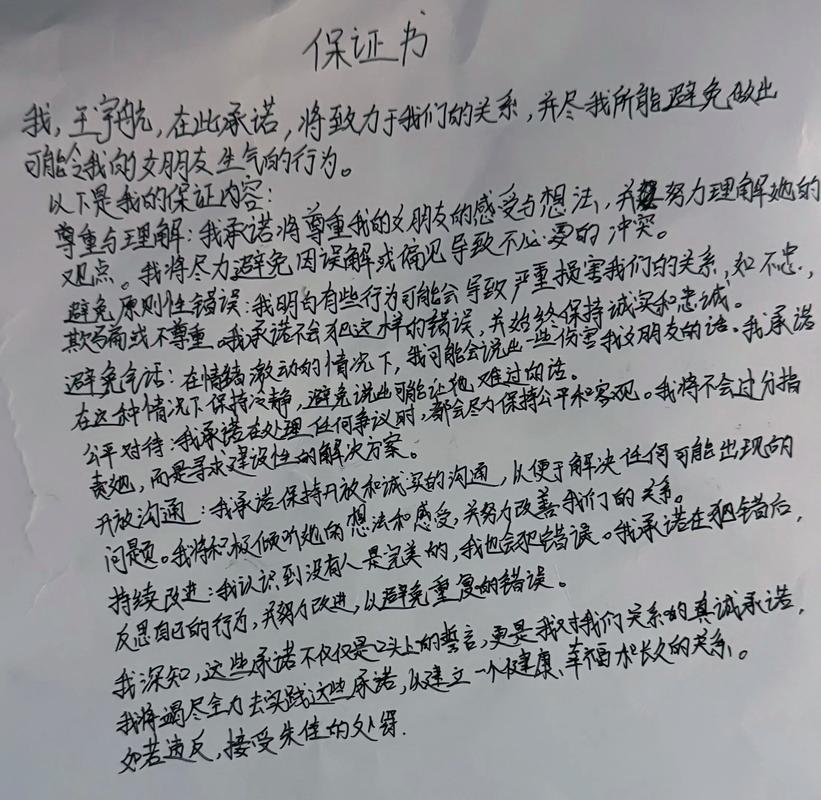 保证书
我,王宇航,在此承诺,将致力于我们的关系,并尽我所能避免做出
可能令我的女朋友生气的行为。
以下是我的保证内容:
尊重与理解:我承诺将尊重我的女朋友的感受与想法,并努力理解她的
观点。我将尽力避免因误解或偏见导致不必要的冲突。
避免原则性错误:我明白有些行为可能会导致严重损害我们的关系,如不忠,
欺骗或不尊重。我承诺不会犯这样的错误,并始终保持诚实和忠诚。
避免气话:在情绪激动的情况下,我可能会说出一些伤害我女朋友的话。我承诺
在这种情况下保持冷静,避免说出可能让她难过的话。
公平对待:我承诺在处理任何争议时,都会尽力保持公平和客观。我将不会过分指
责她,而是寻求建设性的解决方案。
开放沟通:我承诺保持开放和诚实的沟通,以便于解决任何可能出现的
问题。我将积极倾听她的想法和感受,并努力改善我们的关系。
持续改进:我认识到没有人是完美的,我也会犯错误。我承诺在犯错后,
反思自己的行为,并努力改进,以避免重复的错误。
我深知,这些承诺不仅仅是口头上的誓言,更是我对我们关系的真诚承诺,
我将竭尽全力去实践这些承诺,以建立一个健康、幸福和长久的关系。
如若违反,接受朱佳的处罚.